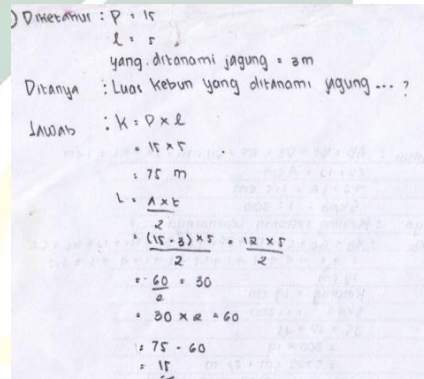 ) Diketahui : P = 15
l = 5
yang ditanami jagung = 3m
Ditanya : Luas kebun yang ditanami jagung ... ?
Jawab : K = P x l
= 15 x 5
= 75 m
L = A x t / 2
= (15 - 3) x 5 / 2 = 12 x 5 / 2
= 60 / 2 = 30
= 30 x 2 = 60
= 75 - 60
= 15